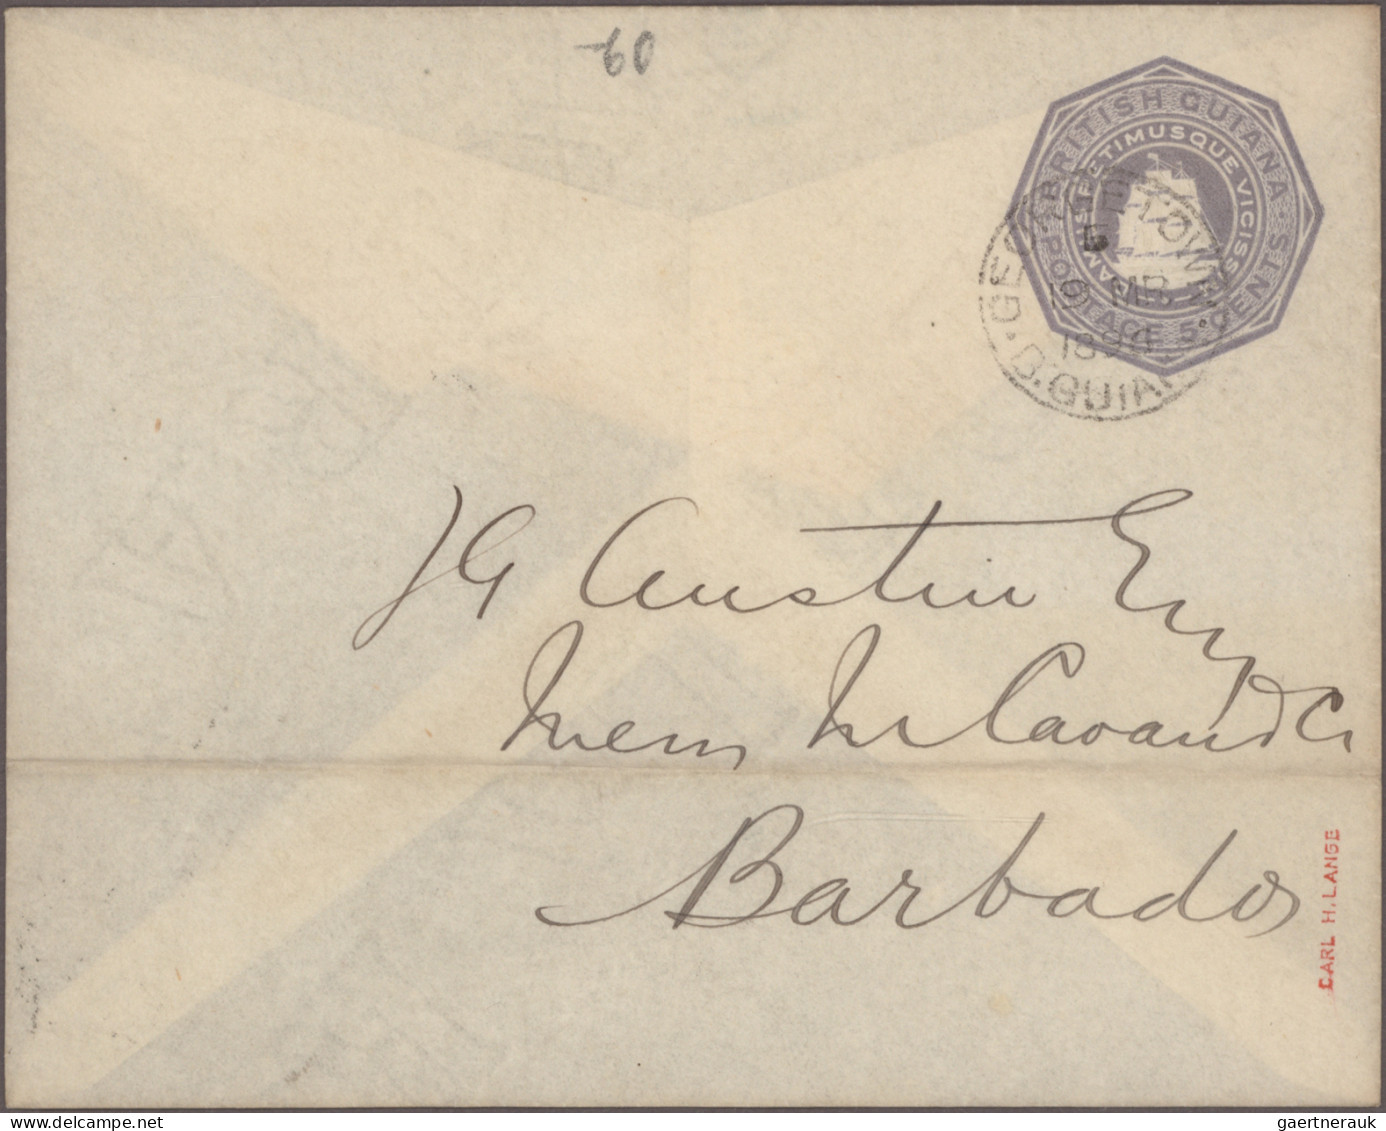 60
BRITISH GUIANA
DAMUS PETIMUSQUE VICISSIM
POSTAGE 5 CENTS
GEORGETOWN
E
MR
B. GUIANA
JG Austin Esq
Barbados
CARL H. LANGE
gaertnerauk